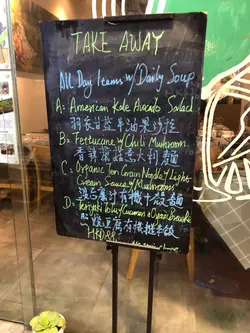 TAKE AWAY
All Day Items w/ Daily Soup
A: American Kale Avocado Salad
羽衣甘藍牛油果沙拉
B: Fettuccine w/ Chili Mushroom
香辣蘑菇意大利麵
C: Organic Ten Grain Noodle w/ Light
Cream Sauce w/ Mushrooms
有機十穀麵
D: Teriyaki Tofu w/
豆腐有機
HKD88